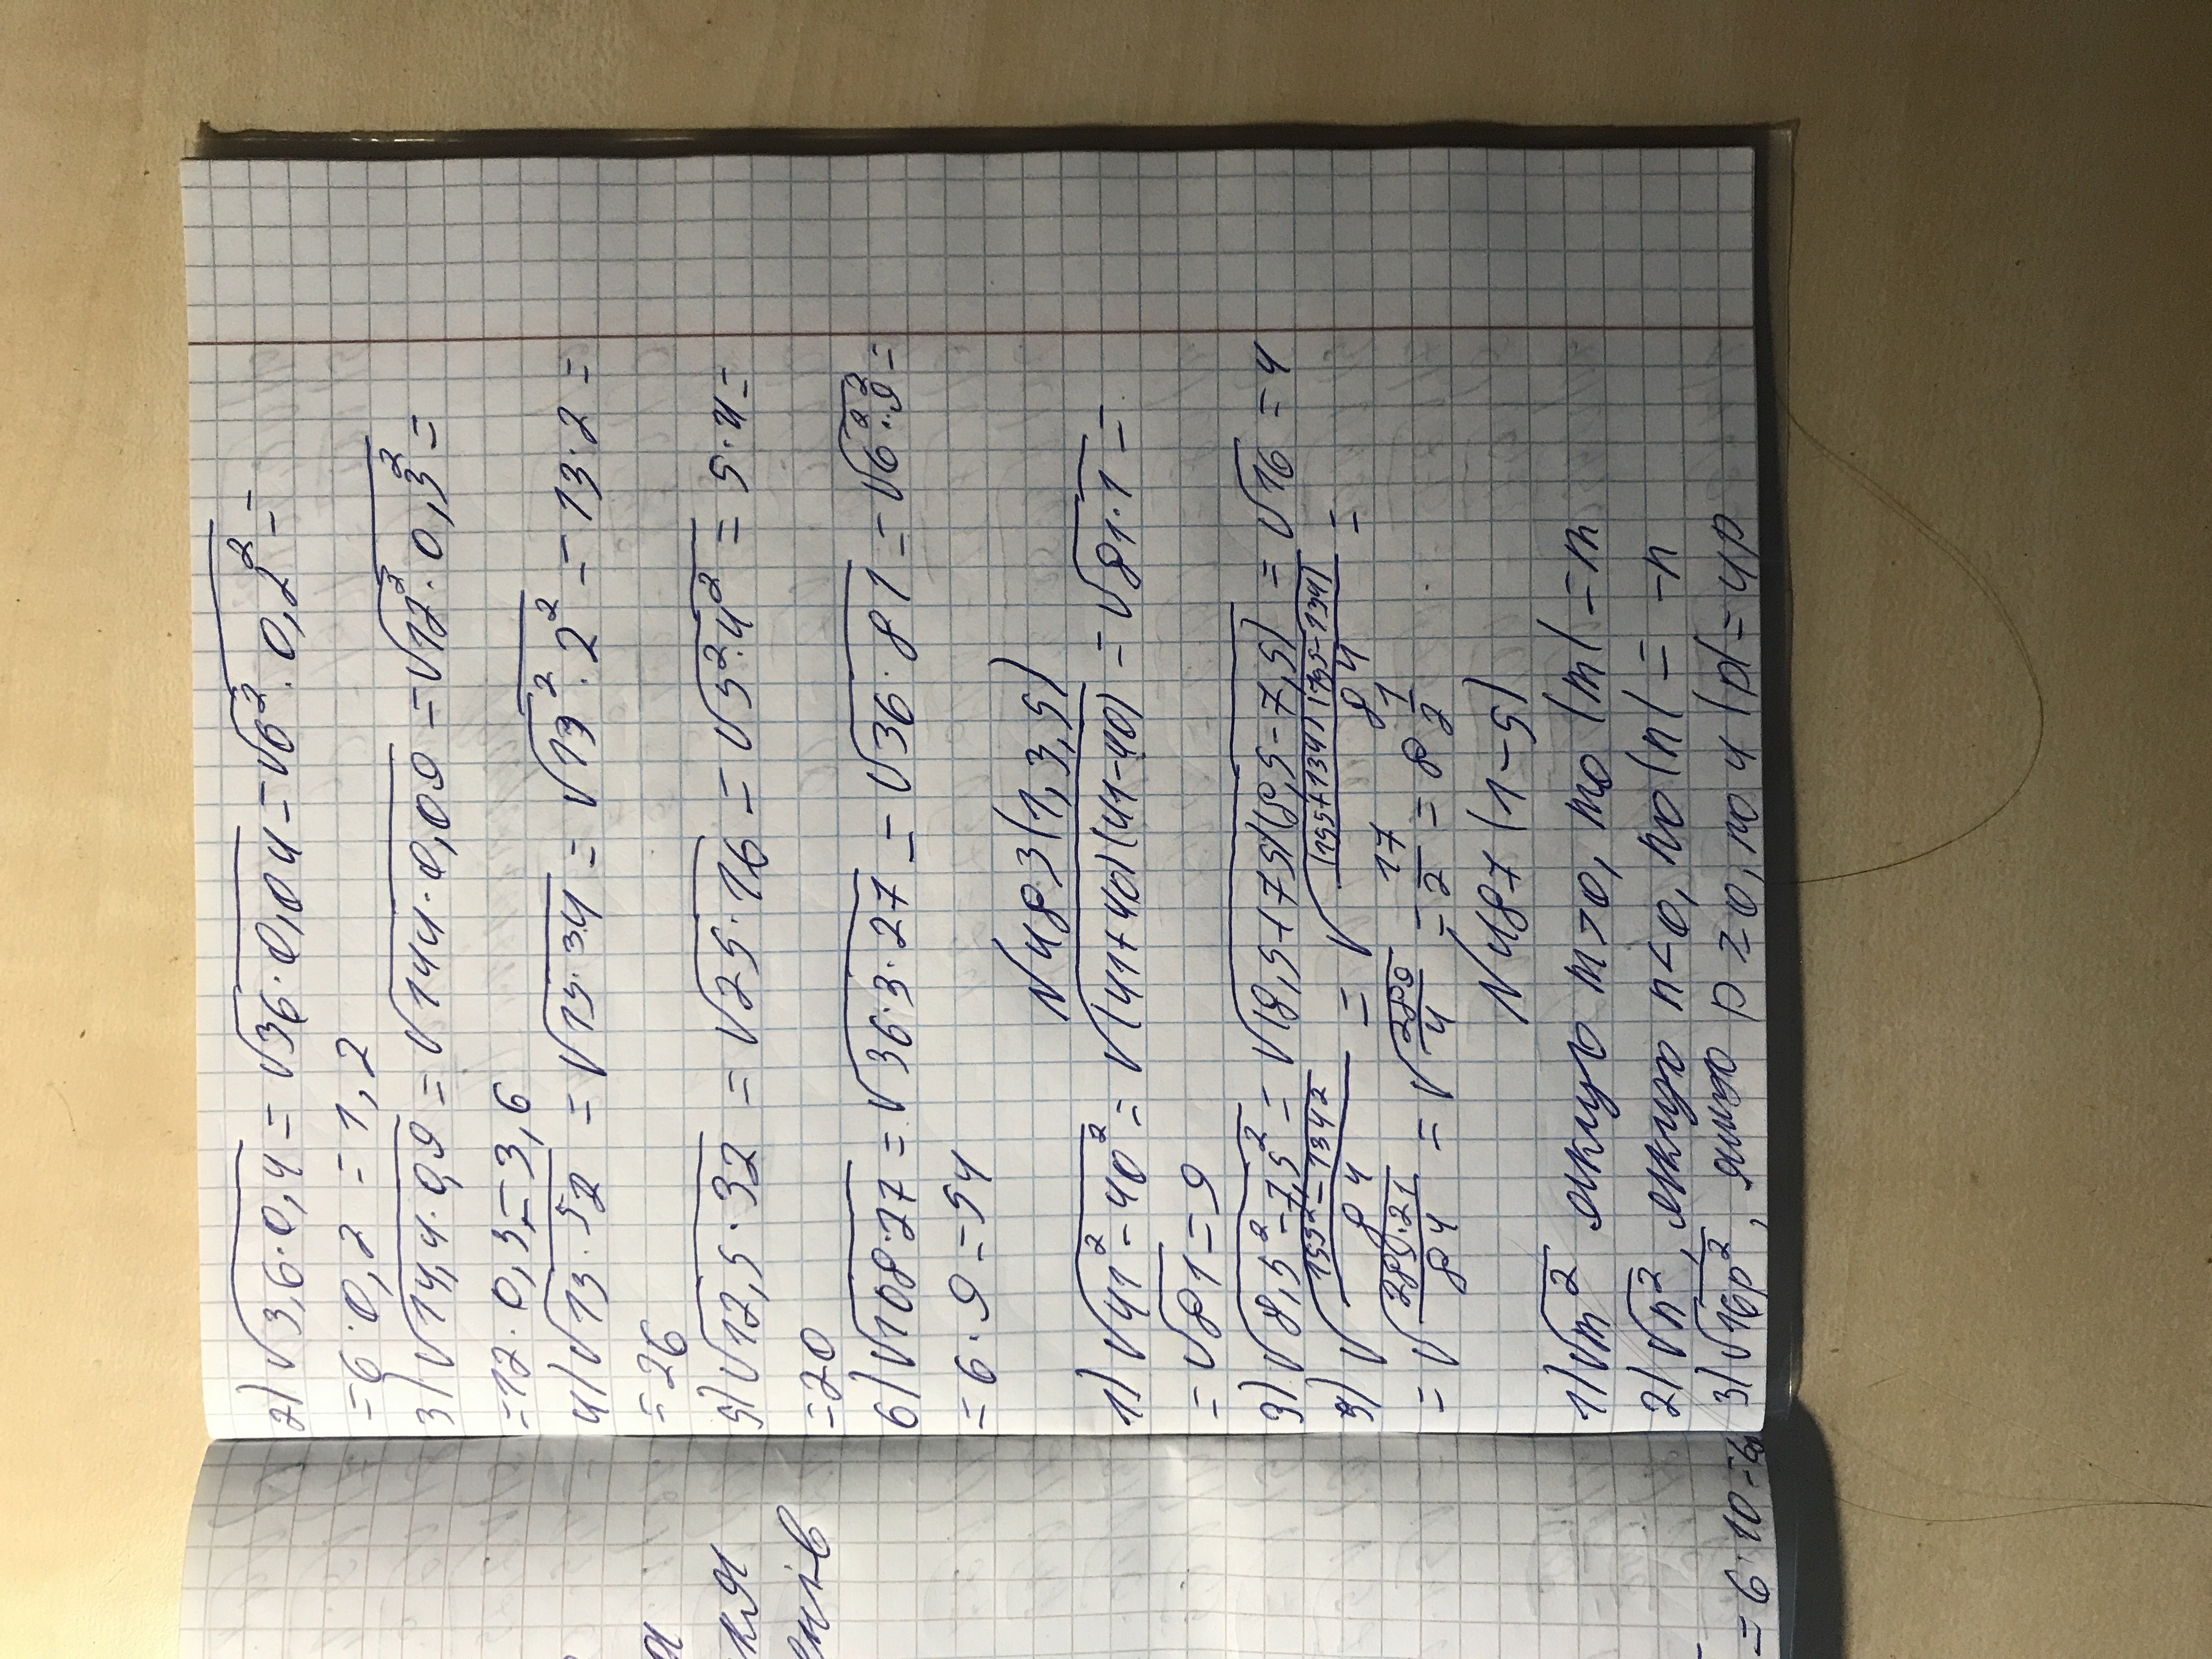 2) √3,6·0,4 = √36·0,04 = √6²·0,2² =
= 6·0,2 = 1,2
3) √14,4·0,9 = √144·0,09 = √12²·0,3² =
= 12·0,3 = 3,6
4) √13·52 = √13·13·4 = √13²·2² = 13·2 =
= 26
5) √12,5·32 = √25·16 = √5²·4² = 5·4 =
= 20
6) √108·27 = √36·3·27 = √36·81 = √6²·9² =
= 6·9 = 54
№483(1,3,5)
1) √41²-40² = √(41+40)(41-40) = √81·1 =
= √81 = 9
3) √8,5²-7,5² = √(8,5+7,5)(8,5-7,5) = √16 = 4
5) √155²-134²/84 = √(155+134)(155-134)/84 =
= √289·21/84 = √289/4 = 17/2 = 8 1/2
№487(1-5)
1) √m² якщо m>0, то |m| = m
2) √n², якщо n<0, то |n| = -n
3) √16p², якщо p≥0, то 4|p| = 4p
= 6·10 =